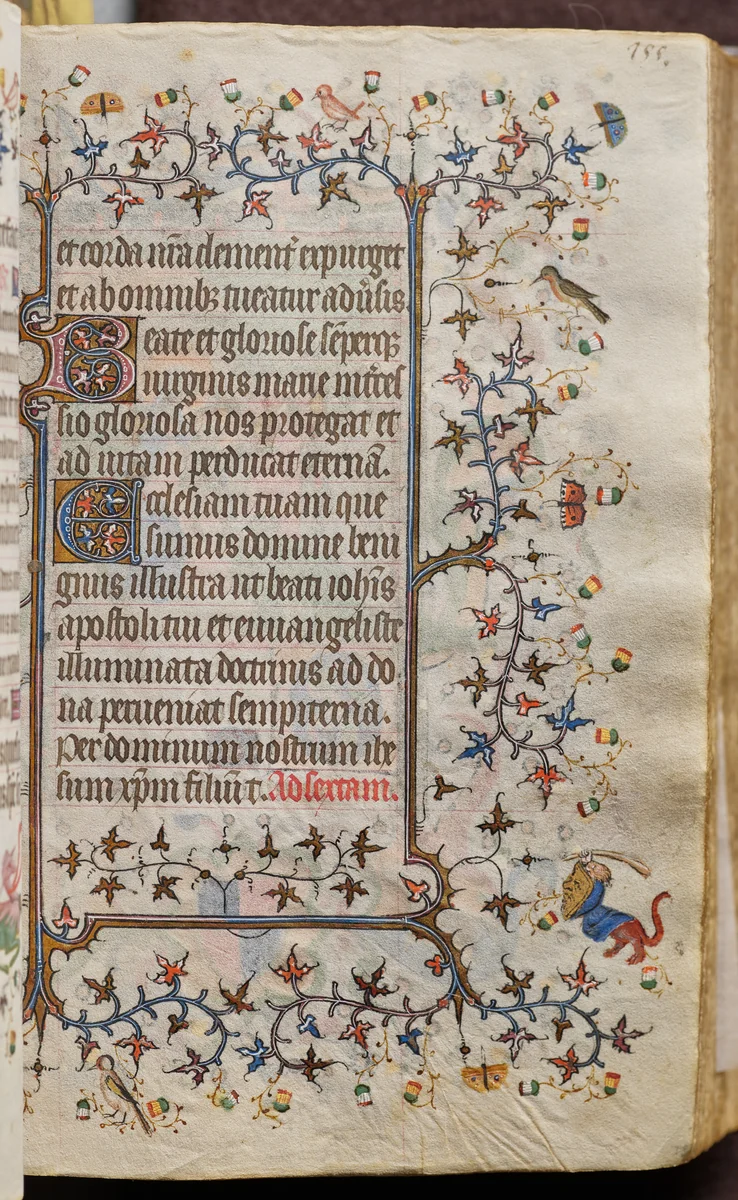 155.
et corda nr̄a clement̾ expurget
et ab omnibꝫ tueatur adūsis
Beate et gloriose sēperqꝫ
uirginis marie int̾ces
sio gloriosa nos protegat et
ad uitam perducat eternā.
Ecclesiam tuam que
sumus domine beni
gnus illustra ut beati ioh̄is
apostoli tui et euuangeliste
illuminata doctrinis ad do
na perueniat sempiterna.
Per dominum nostrum ihe
sum xp̄m filiū t. Ad sextam.